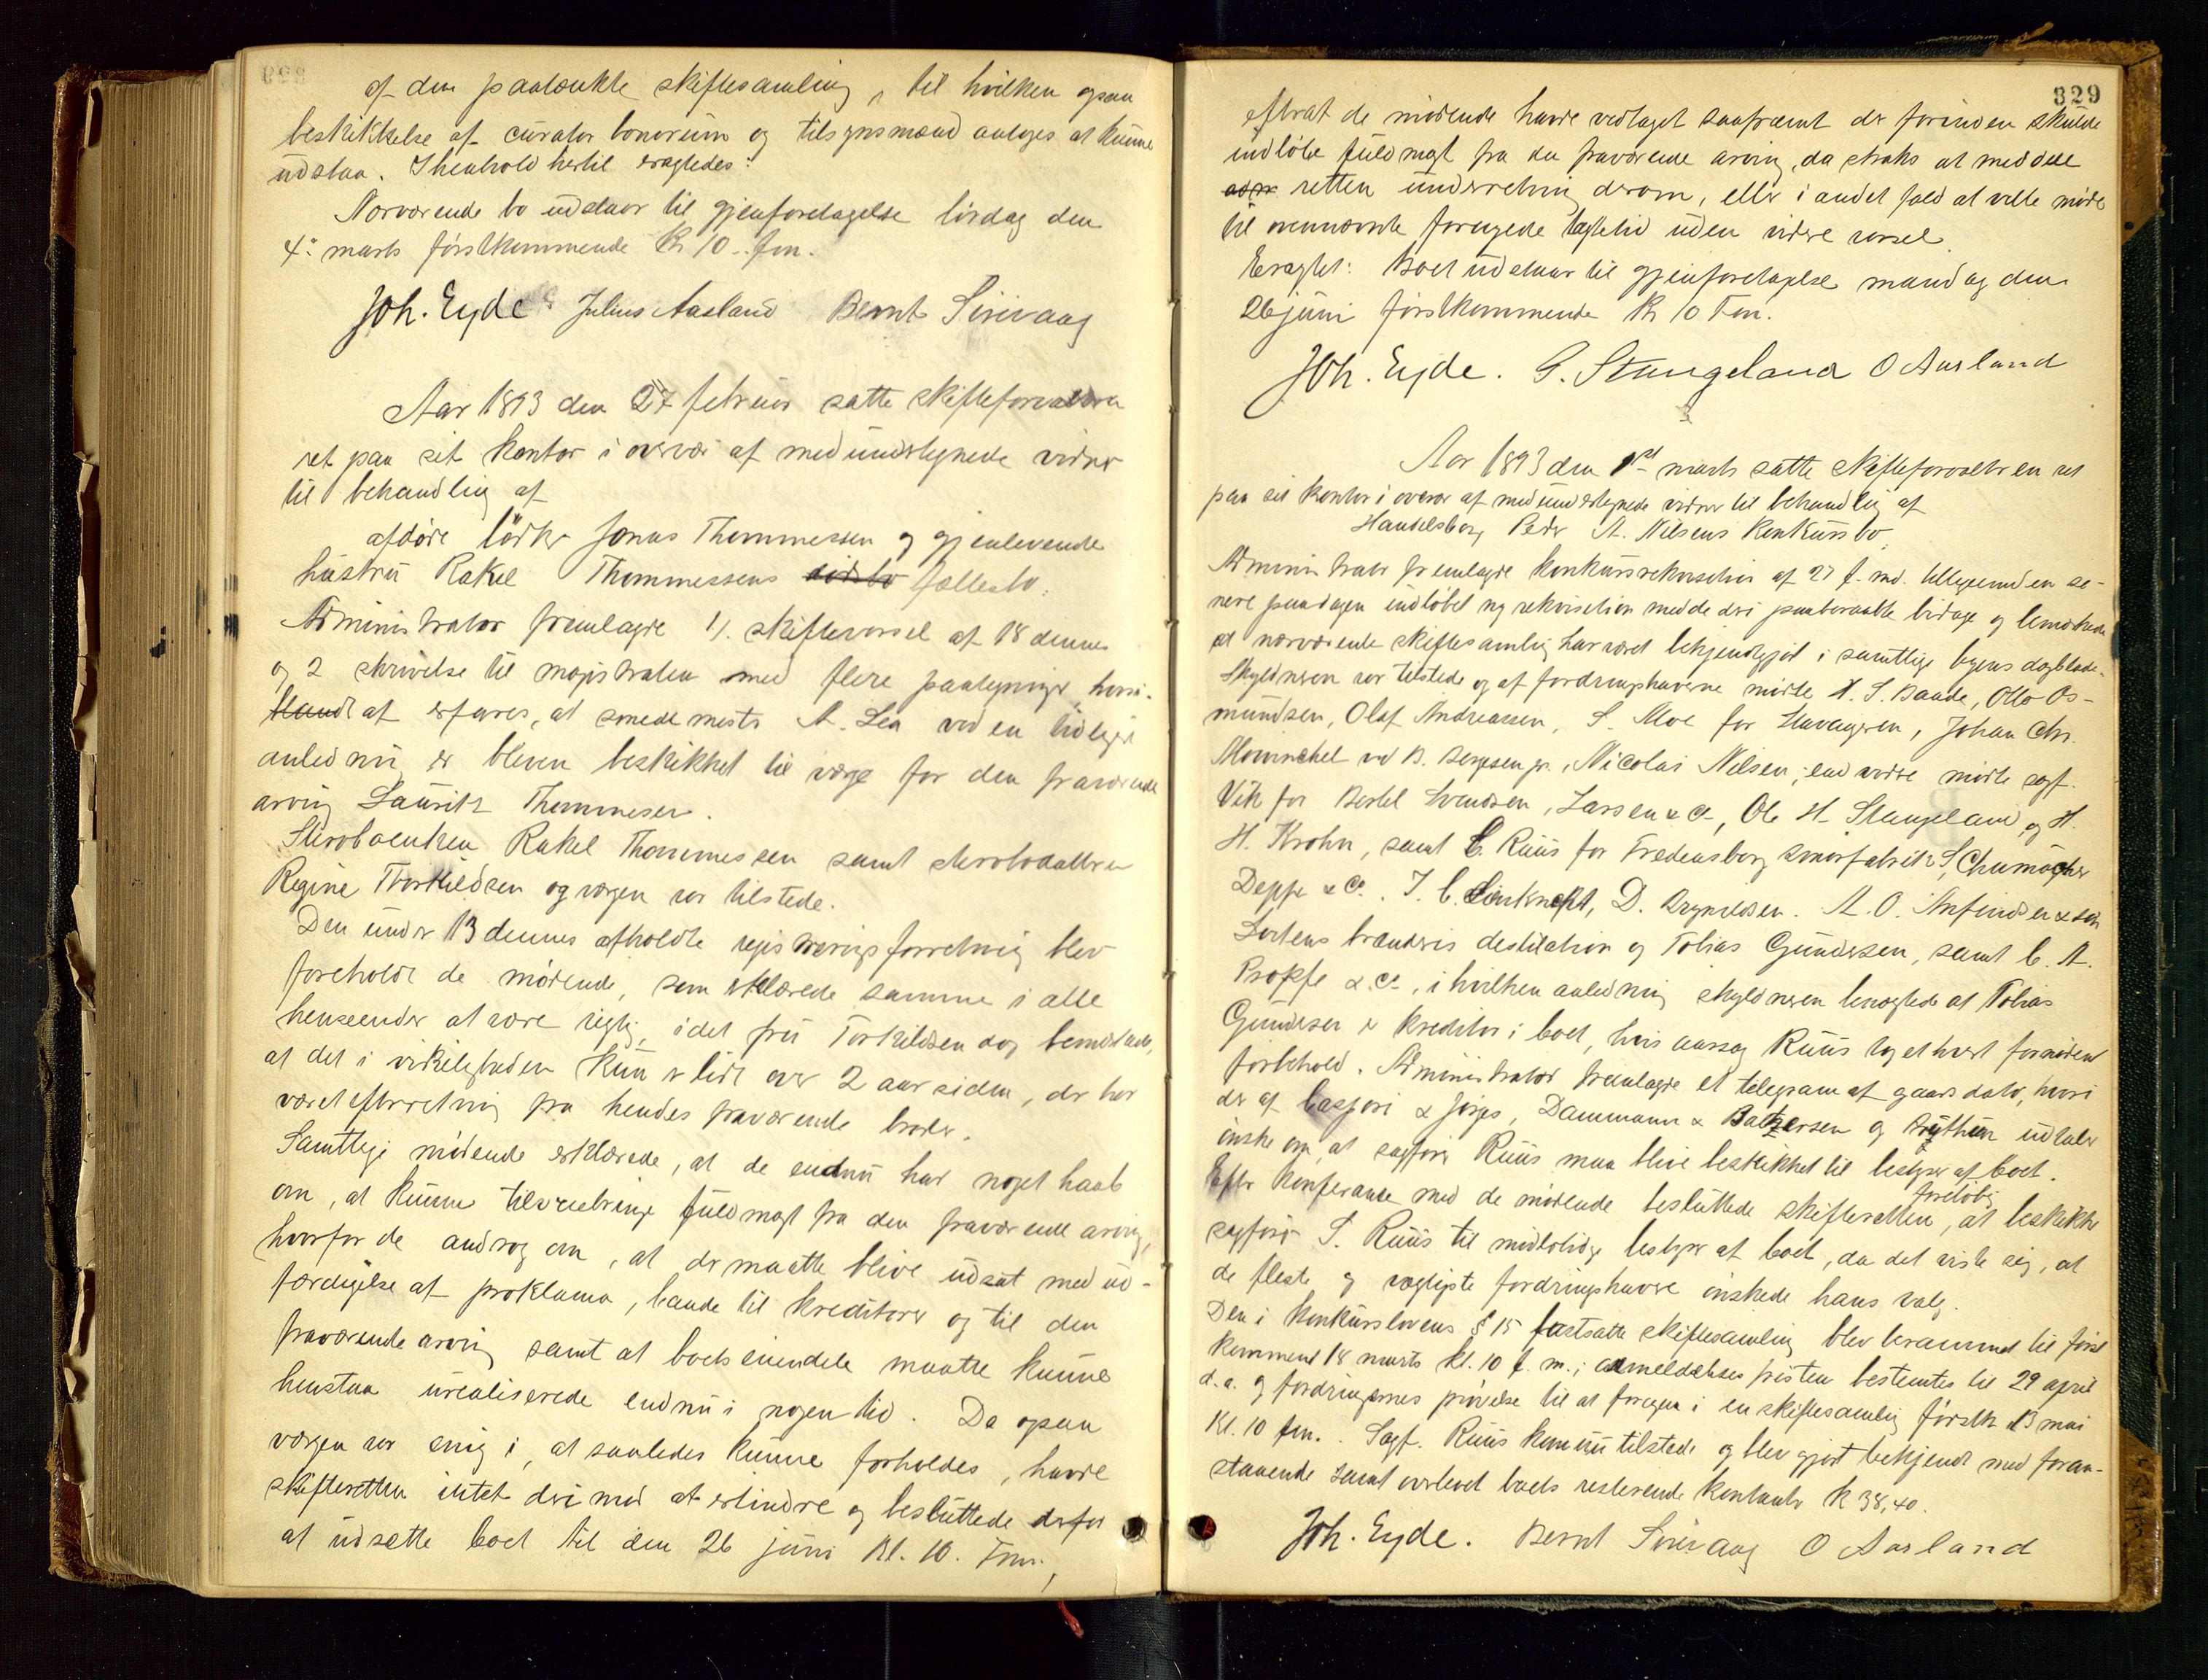 af den paatænkte skiftesamling, til hvilken ogsaa
beskikkelse af curator bonorum og tilsynsmænd antoges at kunne
udstaa. I henhold hertil eragtedes:
Nærværende bo udstaar til gjenforetagelse lørdag den
4: marts førstkommende Kl 10 fm.
Joh. Eyde Julius Aasland Bernt Sirevaag
Aar 1893 den 27 februar satte skifteforvalteren
ret paa sit kontor i overvær af medundertegnede vidner
til behandling af
afdøde lodser Jonas Thommessen og gjenlevende
hustru Rakel Thommessens fællesbo.
Administrator fremlagde 1). skiftevarsel af 18 dennes
og 2 skrivelse til magistraten med flere paategninger, hvori-
af erfares, at smedemester A. Lea ved en tidligere
anledning er bleven beskikket til værge for den fraværende
arving Lauritz Thommesen.
Stervboenken Rakel Thommessen samt stervbodatteren
Regine Thorkildsen og værgen var tilstede.
Den under 13 dennes afholdte registreringsforretning blev
foreholdt de mødende, som erklærede samme i alle
henseender at være rigtig, idet fru Torkildsen dog bemærkede,
at det i virkeligheden kun er lidt over 2 aar siden, der har
været efterretning fra hendes fraværende broder.
Samtlige mødende erklærede, at de endnu har noget haab
om, at kunne tilveiebringe fuldmagt fra den fraværende arving,
hvorfor de androg om, at der maatte blive udsat med ud-
færdigelse af proklama, baade til kreditorer og til den
fraværende arving samt at boets eiendele maatte kunne
henstaa urealiserede endnu i nogen tid. Da ogsaa
værgen var enig i, at saaledes kunne forholdes, havde
skifteretten intet derimod at erindre og besluttede derfor
at udsætte boet til den 26 juni Kl. 10. Fm.,
329
efterat de mødende havde vedtaget saafremt der forinden skulde
indløbe fuldmagt fra den fraværende arving, da straks at meddele
retten underretning derom, eller i andet fald at ville møde
til ovennævnte foregede tægtetid uden videre varsel.
Eragtet: Boet udstaar til gjenforetagelse mandag den
26 juni førstkommende Kl 10 Fm.
Joh. Eyde. G. Stangeland O Aasland
Aar 1893 den 1st marts satte skifteforvalteren ret
paa sit kontor i overvær af medundertegnede vidner til behandling af
Handelsborg Peder A. Nilsens konkursbo.
Administrator fremlagde konkursrekvisition af 27 f. md. tilligemed en se-
nere paa dagen indløbet ny rekvisition med de deri paaberaabte bidrag og bemærkede
at nærværende skiftesamling har været bekjendtgjort i samtlige byens dagblade.
Skyldneren var tilstede og af fordringshaverne mødte A. S. Baade, Otto Os-
mundsen, Olaf Andreassen, S. Moe for Stavangeren, Johan Chr.
ved B. Bergesen jr., Nicolai Nilsen; end videre mødte sagf.
Vik for Bertel Svendsen, Larsen & Co, Ole H. Stangeland, og H.
H. Krohn, samt C. Ruus for Fredensborg smørfabrik, Schumacher
Deppe & Co. J. C. D. Brynildsen. A. O. Anfindsen & søn
Lortens brænderis destillation og Tobias Gundersen, samt C. A.
Propfe & Co., i hvilken anledning skyldneren benægtede at Tobias
Gundersen er kreditor i boet, hvis aarsag Ruus tog ethvert fornødent
forbehold. Administrator fremlagde et telegram af gaars dato, hvori
der af Caspari & Jørgs, Dammann & Batzersen og udtaler
ønske om, at sagfører Ruus maa blive beskikket til bestyrer af boet.
Efter konferance med de mødende besluttede skifteretten, foreløbig at beskikke
sagfører S. Ruus til midlertidige bestyrer af boet, da det viste sig, at
de fleste og vægtigste fordringshavere ønskede hans valg.
Den i konkurslovens § 15 fastsatte skiftesamling blev berammet til først
kommende 18 marts kl. 10 f. m.; anmeldelsesfristen bestemtes til 29 april
d.a. og fordringernes prøvelse til at foregaa i en skiftesamling førstk 13 mai
Kl. 10 fm. Sagf. Ruus kom nu tilstede og blev gjort bekjendt med foran-
staaende samt overlevet boets resterende kontante K 38,40.
Joh. Eyde. Bernt Sirevaag O Aasland